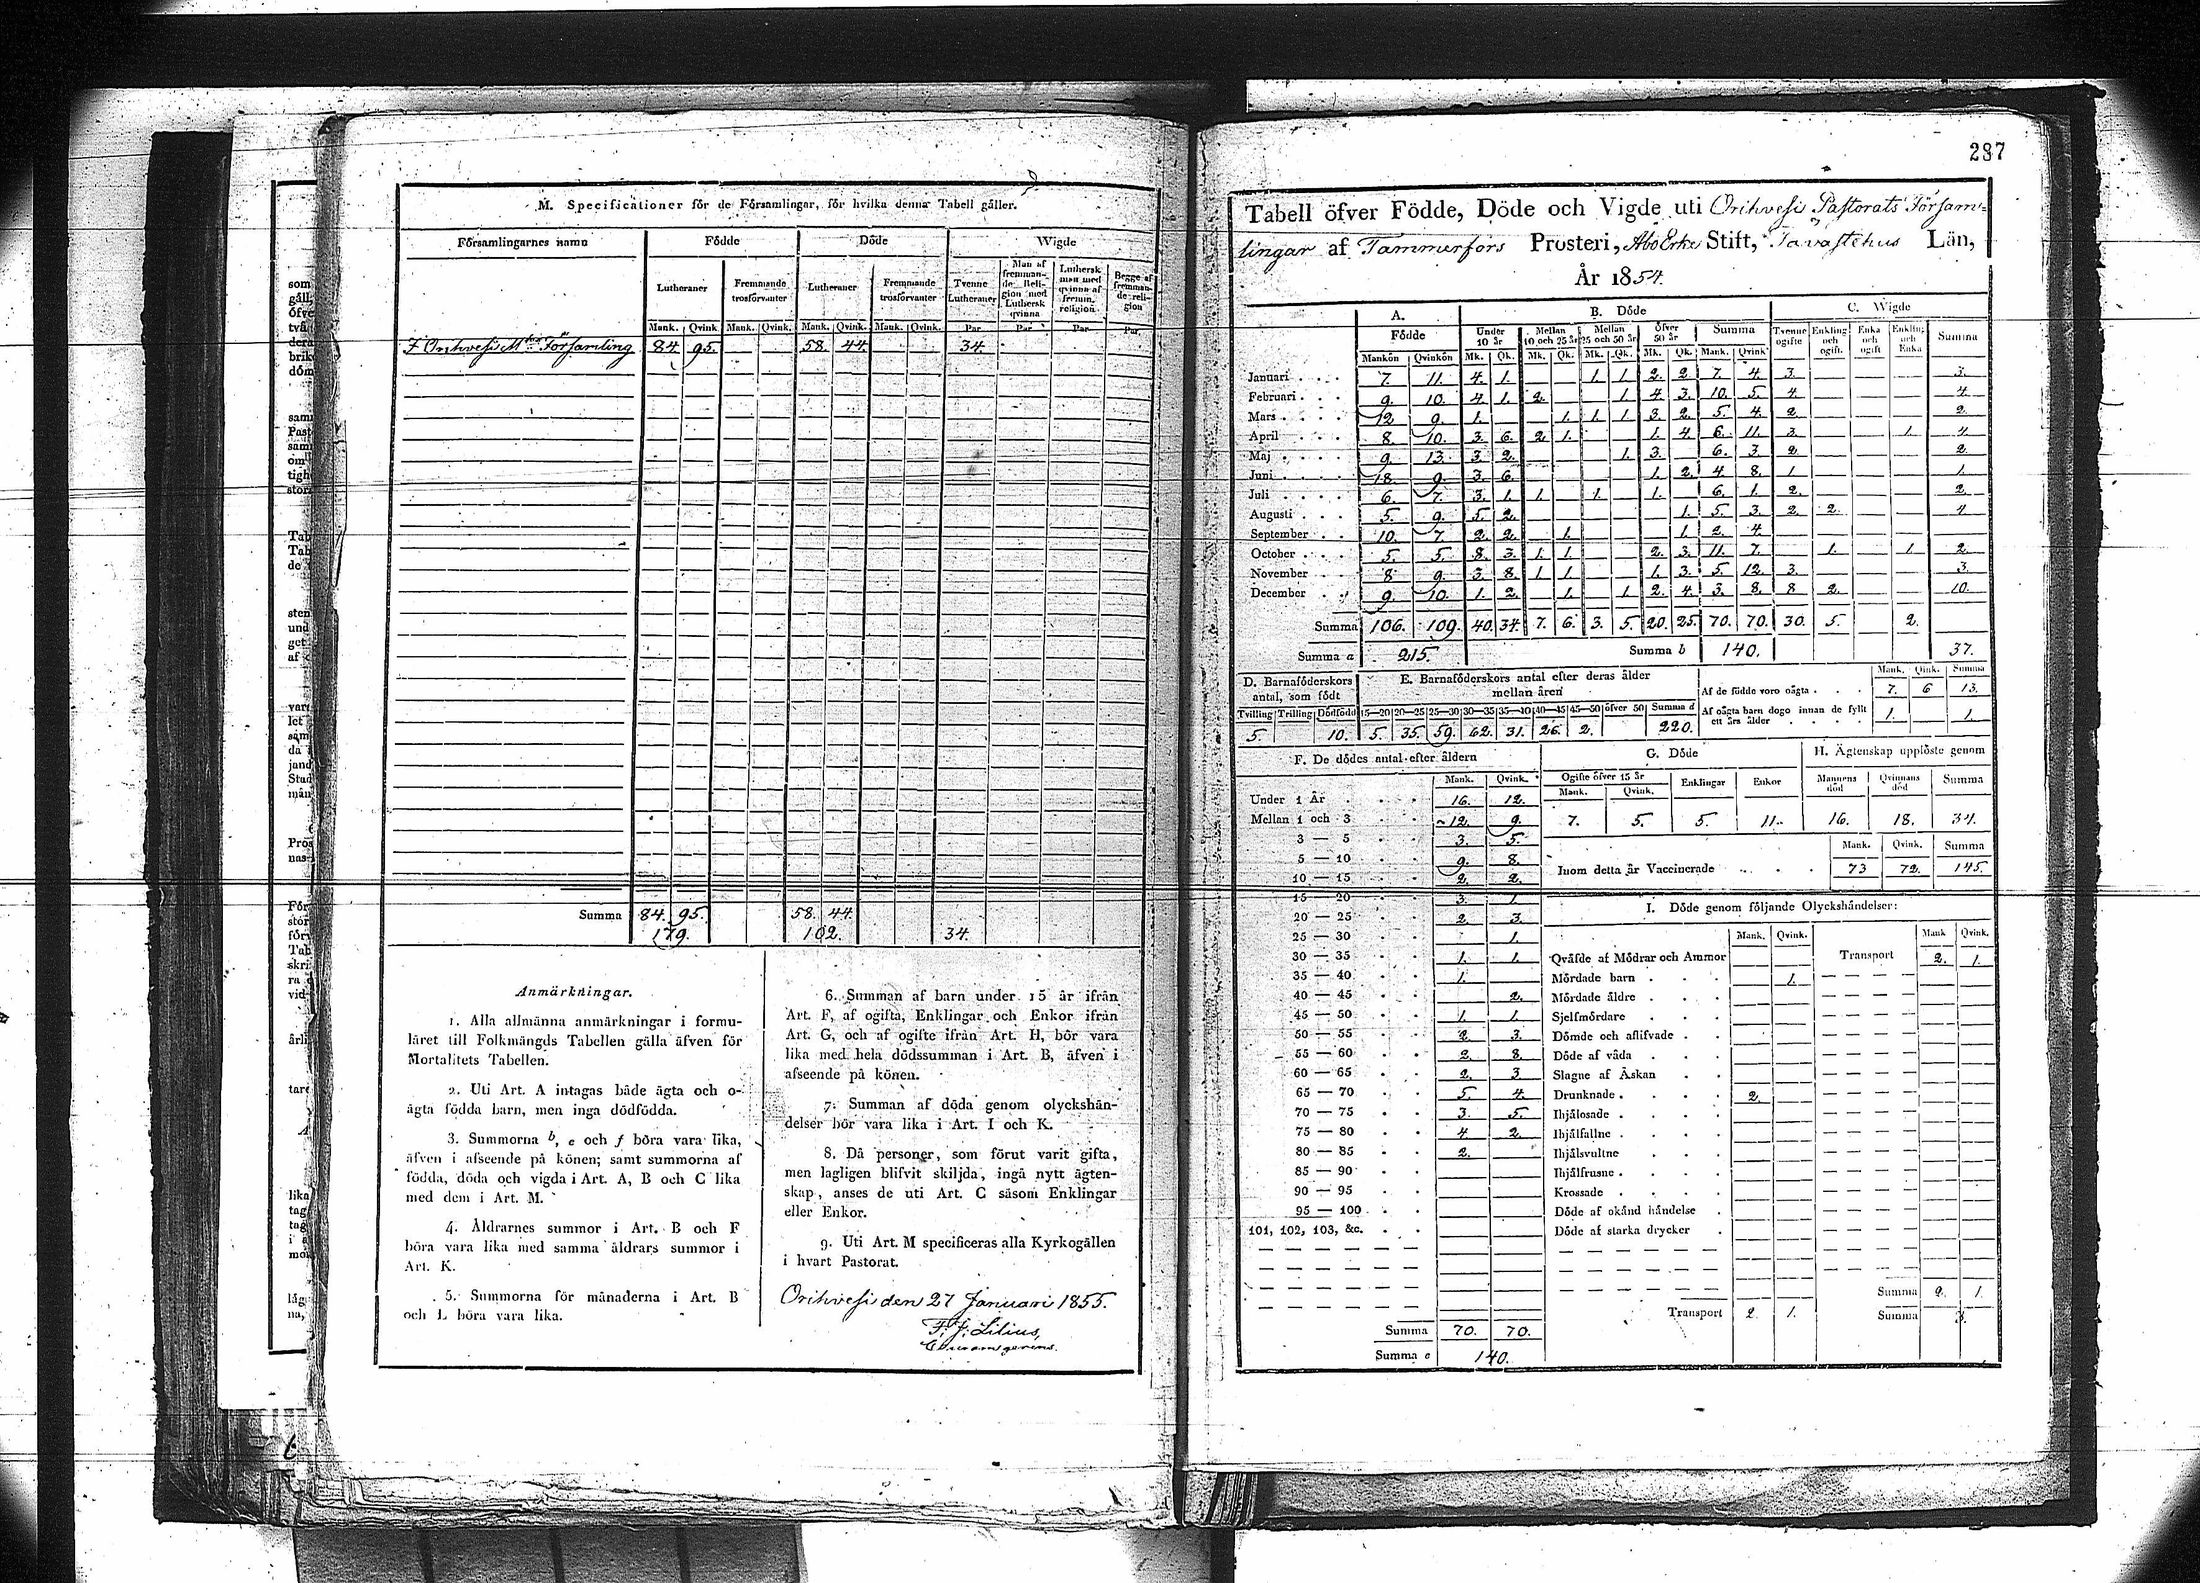 M. Specificationer för de Församlingar, för hvilka denna Tabell gäller.
Församlingarnes namn Födde Döde Wigde
Lutheraner Fremmande trosförvanter Lutheraner Fremmande trosförvanter Tvenne Lutheraner Man af fremmande Religion med Luthersk qvinna Luthersk man med qvinna af fremm. religion Begge af fremmande religion
Mank. Qvink. Mank. Qvink. Mank. Qvink. Mank. Qvink. Par Par Par Par.
I Orihvesi Församling 84. 95. 58. 44. 34.
Summa 84. 95. 58. 44.
179. 102. 34.
Anmärkningar.
1. Alla allmänna anmärkningar i formu-
läret till Folkmängds Tabellen gälla äfven för
Mortalitets Tabellen.
2. Uti Art. A intagas både ägta och o-
ägta födda barn, men inga dödfödda.
3. Summorna b, e och f böra vara lika,
äfven i afseende på könen; samt summorna af
födda, döda och vigda i Art. A, B och C lika
med dem i Art. M.
4. Åldrarnes summor i Art. B och F
böra vara lika med samma åldrars summor i
Art. K.
5. Summorna för månaderna i Art. B
och L böra vara lika.
6. Summan af barn under 15 år ifrån
Art. F, af ogifta, Enklingar och Enkor ifrån
Art. G, och af ogifte ifrån Art. H, bör vara
lika med hela dödssumman i Art. B, äfven i
afseende på könen.
7. Summan af döda genom olyckshän-
delser bör vara lika i Art. I och K.
8. Då personer, som förut varit gifta,
men lagligen blifvit skiljda, ingå nytt ägten-
skap, anses de uti Art. C såsom Enklingar
eller Enkor.
9. Uti Art. M specificeras alla Kyrkogällen
i hvart Pastorat.
Orihvesi den 27 Januari 1855.
F. J. Lilius,
287
Tabell öfver Födde, Döde och Vigde uti Orihvesi Pastorats Försam-
lingar af Tammerfors Prosteri, Åbo Erke Stift, Tavastehus Län,
År 1854.
A. Födde B. Döde C. Wigde
Under 10 år Mellan 10 och 25 år Mellan 25 och 50 år Öfver 50 år Summa Tvenne ogifte Enkling och ogift. Enka och ogift Enkling och Enka Summa
Mankön Qvinkön Mk. Qk. Mk. Qk. Mk. Qk. Mk. Qk. Mank. Qvink.
Januari 7. 11. 4. 1. 1. 1. 2. 2. 7. 4. 3. 3.
Februari 9. 10. 4. 1. 2. 1. 4. 3. 10. 5. 4. 4.
Mars 12 9. 1. 1. 1. 1. 3. 2. 5. 4. 2. 2.
April 8. 10. 3. 6. 2. 1. 1. 4. 6. 11. 3. 1. 4.
Maj 9. 13. 3. 2. 1. 3. 6. 3. 2. 2.
Juni 18. 9. 3. 6. 1. 2. 4 8. 1. 1.
Juli 6. 7. 3. 1. 1. 1. 1. 6. 1. 2. 2.
Augusti 5. 9. 5. 2. 1. 5. 3. 2. 2. 4.
September 10. 7. 2. 2. 1. 1. 2. 4.
October 5. 5. 8. 3. 1. 1. 2. 3. 11. 7. 1. 1. 2.
November 8 9. 3. 8. 1. 1. 1. 3. 5. 12. 3. 3.
December 9. 10. 1. 2. 1. 1. 2. 4. 3. 8. 8 2. 10.
Summa 106. 109. 40. 34. 7. 6. 3. 5. 20. 25. 70. 70. 30. 5. 2.
Summa a 215. Summa b 140. 37.
D. Barnaföderskors antal, som födt
Tvilling Trilling Dödfödd
5. 10.
E. Barnaföderskors antal efter deras ålder mellan åren
15—20 20—25 25—30 30—35 35—40 40—45 45—50 öfver 50 Summa d
5. 35. 59. 62. 31. 26. 2. 220.
Mank. Qink. Summa
Af de födde voro oägta 7. 6 13.
Af oägta barn dogo innan de fyllt ett års ålder 1. 1.
F. De dödes antal efter åldern
Mank. Qvink.
Under 1 År 16. 12.
Mellan 1 och 3 12. 9.
3 — 5 3. 5.
5 — 10 9. 8.
10 — 15 2. 2.
15 — 20 3. 1.
20 — 25 2. 3.
25 — 30 1.
30 — 35 1. 1.
35 — 40 1.
40 — 45 2.
45 — 50 1. 1.
50 — 55 2. 3.
55 — 60 2. 8.
60 — 65 2. 3
65 — 70 5. 4.
70 — 75 3. 5.
75 — 80 4. 2.
80 — 85 2.
85 — 90
90 — 95
95 — 100
101, 102, 103, &c.
Summa 70. 70.
Summa c 140.
G. Döde
Ogifte öfver 15 år Enklingar Enkor
Mank. Qvink.
7. 5. 5. 11.
H. Ägtenskap upplöste genom
Mannens död Qvinnans död Summa
16. 18. 34.
Mank. Qvink. Summa
Inom detta år Vaccinerade 73 72. 145.
I. Döde genom följande Olyckshändelser:
Mank. Qvink. Mank Qvink.
Qväfde af Mödrar och Ammor Transport 2. 1.
Mördade barn 1.
Mördade äldre
Sjelfmördare
Dömde och aflifvade
Döde af våda
Slagne af Åskan
Drunknade 2.
Ihjälosade
Ihjälfallne
Ihjälsvultne
Ihjälfrusne
Krossade
Döde af okänd händelse
Döde af starka drycker
Summa 2. 1.
Transport 2 1. Summa 3.